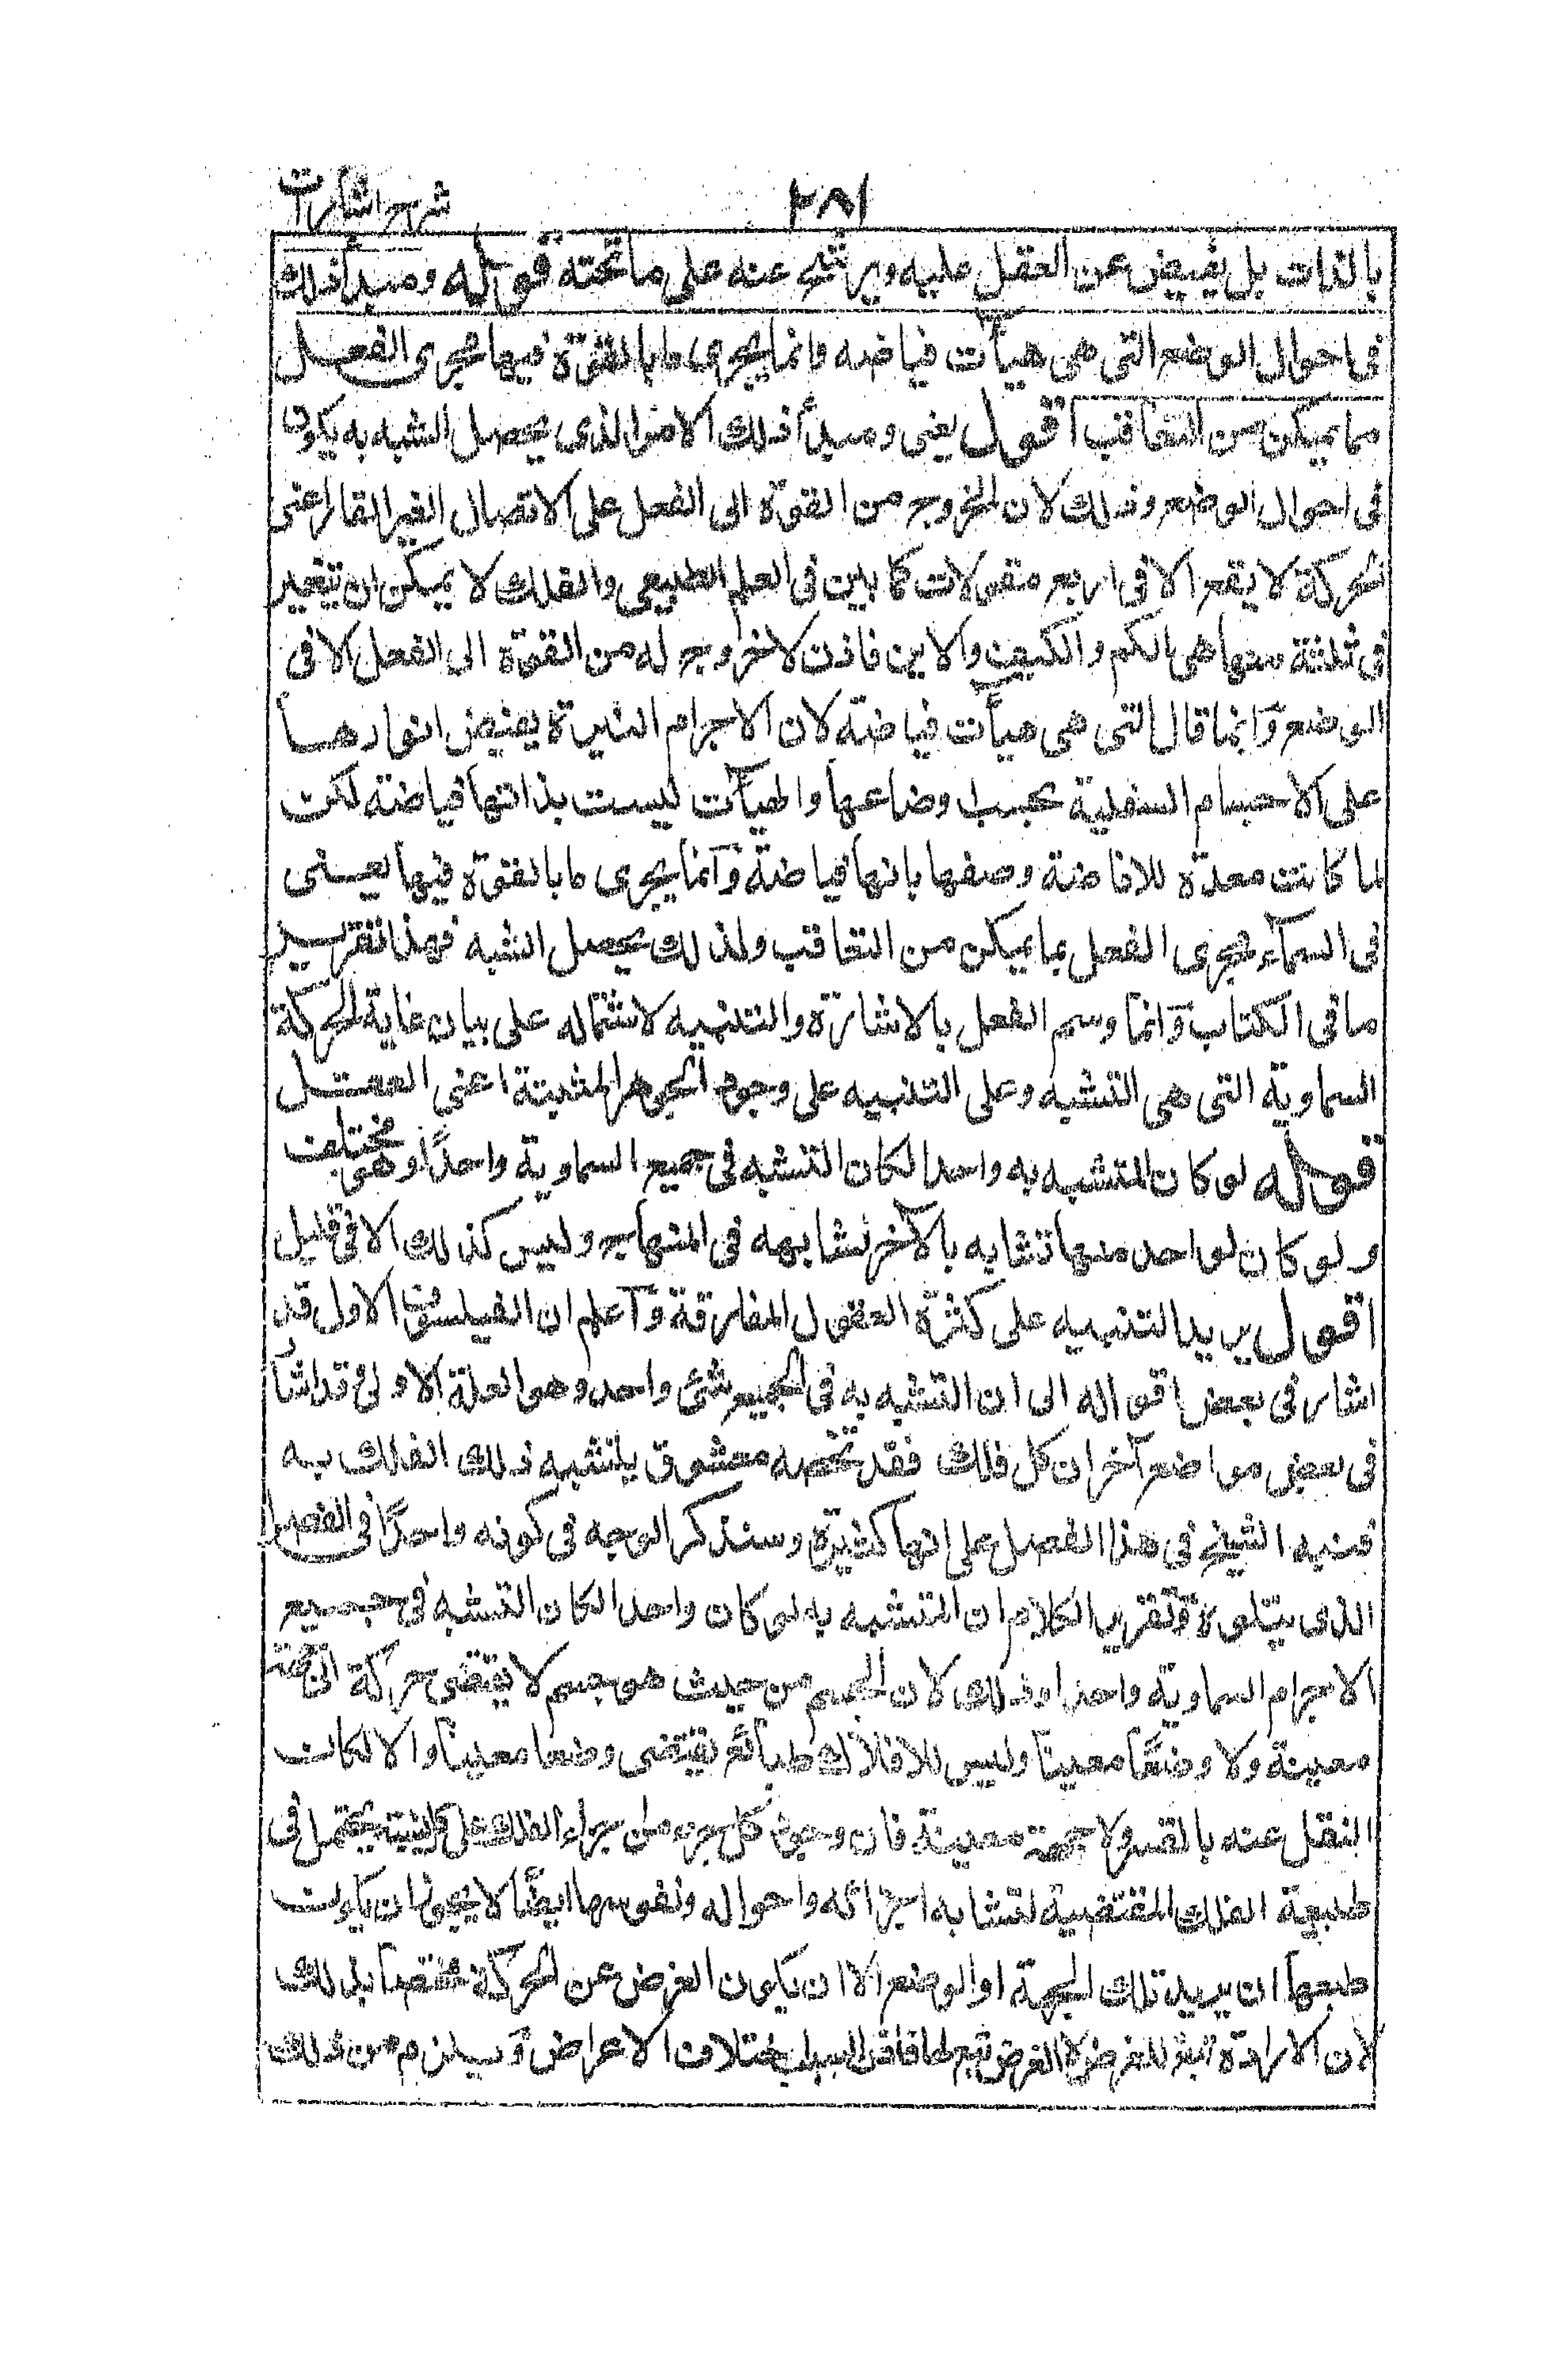 شرح اشارات
٢٨١
بالذات بل يفيض عن العقل عليه ويرشح عنه على ما تحته قوله ومبدأ ذلك
فى احوال الوضع التى هى هيأت فياضه وانما يجرى ما بالقوة فيها مجرى الفعل
مما يمكن من التعاقب اقول يعنى ومبدأ ذلك الامر الذى يحصل الشبه به يكون
فى احوال الوضع وذلك لان الخروج من القوة الى الفعل على الاتصال الغير القار اعنى
الحركة لا يقع الا فى اربع مقولات كما بين فى العلم الطبيعى والفلك لا يمكن ان يتغير
فى ثلثة منها هى الكم والكيف والاين فاذن لا خروج له من القوة الى الفعل الا فى
الوضع وانما قال التى هى هيأت فياضة لان الاجرام النيرة يفيض انوارها
على الاجسام السفلية بحسب اوضاعها والهيأت ليست بذاتها فياضه لكن
لما كانت معدة للافاضة وصفها بانها فياضة وانما يجرى ما بالقوة فيها يعنى
فى السماء مجرى الفعل بما يمكن من التعاقب ولذلك يحصل الشبه فهذا تقرير
ما فى الكتاب وانما وسم الفصل بالاشارة والتنبيه لاشتماله على بيان غاية الحركة
السماوية التى هى التشبه وعلى التنبيه على وجود الجوهر المثبتة اعنى العقل
قوله لو كان المتشبه به واحدا لكان التشبه فى جميع السماوية واحدًا وهو مختلف
ولو كان لواحد منها تشابه بالآخر لشابهه فى المنهاج وليس كذلك الا فى قليل
اقول يريد التنبيه على كثرة العقول المفارقة واعلم ان الفيلسوف الاول قد
اشار فى بعض اقواله الى ان المتشبه به فى الجميع شئ واحد وهو العلة الاولى وقد اشار
فى بعض مواضع آخر ان كل فلك فقد يخصه معشوق يتشبه ذلك الفلك به
فنبه الشيخ فى هذا الفصل على انها كثيرة وسنذكر الوجه فى كونه واحدًا فى الفصل
الذى يتلوه وتقرير الكلام ان المتشبه به لو كان واحدا لكان التشبه فى جميع
الاجرام السماوية واحدا وذلك لان الجسم من حيث هو جسم لا يقتضى حركة الى جهة
معينة ولا وضعًا معينًا وليس للافلاك طبائع يقتضى وضعا معينًا والا لكان
النقل عنه بالقسر ولا جهة معينة فان وجود كل جزء من اجزاء الفلك على كل نسبة يحتمل فى
طبيعة الفلك المقتضية لتشابه اجزائه واحواله ونفوسها ايضًا لا يجوز ان يكون
طبعها ان يريد تلك الجهة او الوضع الا ان يكون الغرض من الحركة مختصا بذلك
لان الارادة تبع للغرض لا الغرض تبع لها فاذن السبب اختلاف الاغراض ويلزم من ذلك